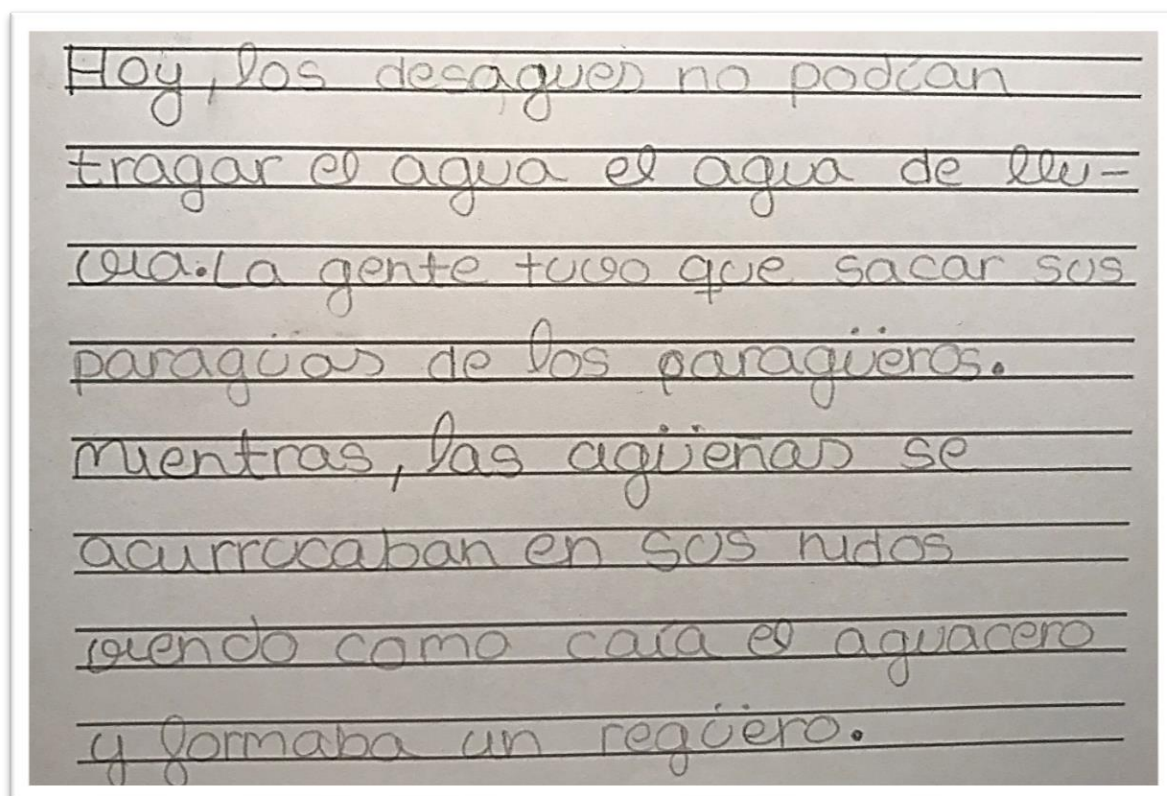 Hoy, los desagues no podían
tragar el agua el agua de llu-
via. La gente tuvo que sacar sus
paragüas de los paragüeros.
mientras, las agüeñas se
acurrucaban en sus nidos
viendo como caía el aguacero
y formaba un regüero.